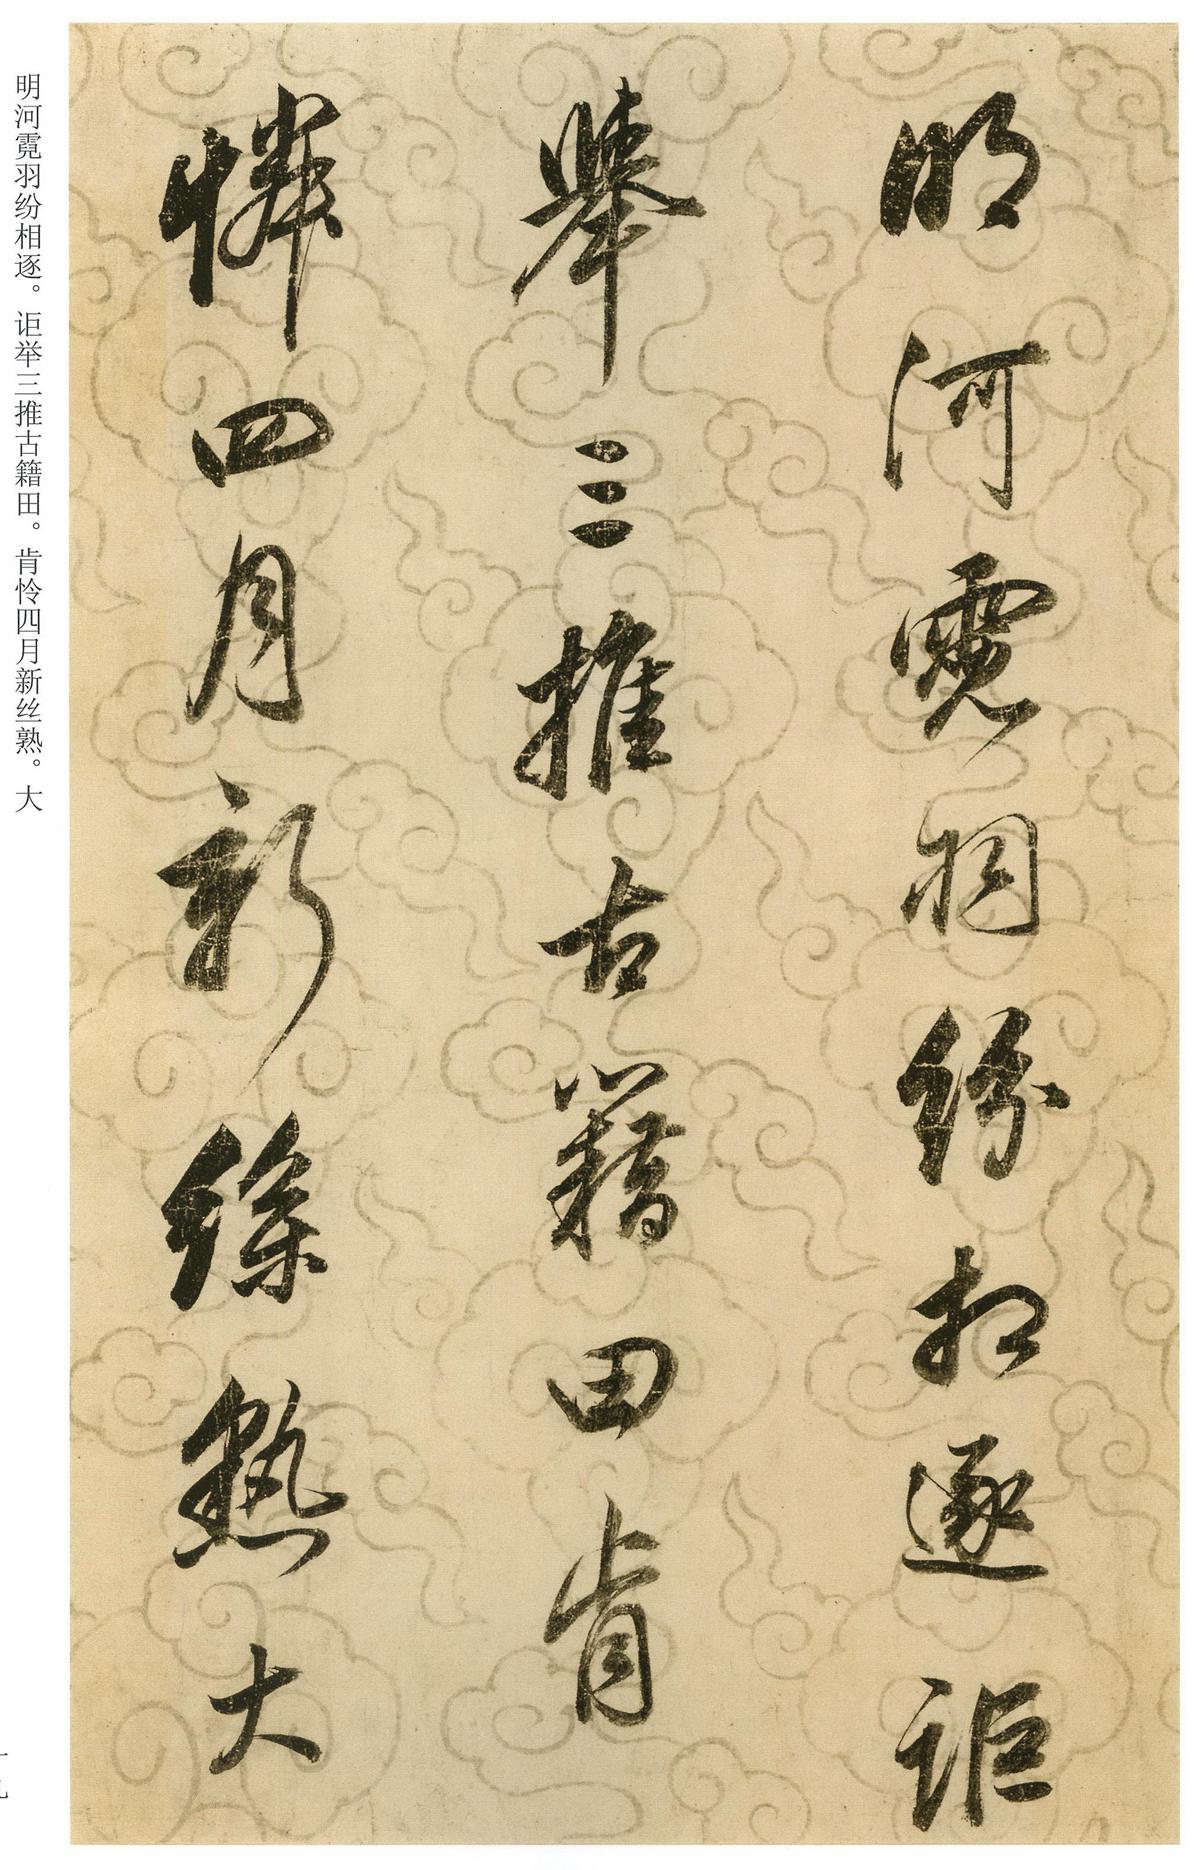 明河霓羽紛相逐詎
舉三推古籍田肯
憐四月新絲熟大
明河霓羽纷相逐。讵举三推古籍田。肯怜四月新丝熟。大